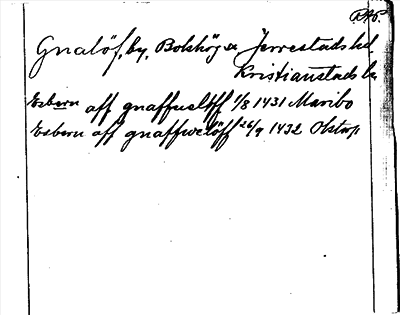 P.A.P.
Gnalöf, by, Bolshög sn Jerrestads hd.
Kristianstads län
Esbern aff gnaffueløff 1/8 1431 Maribo
Esbern aff gnaffweløff 26/9 1432 Olstop